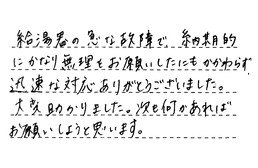 給湯器の急な故障で、納期的
にかなり無理をお願いしたにもかかわらず
迅速な対応ありがとうございました。
大変助かりました。次も何かあれば
お願いしようと思います。